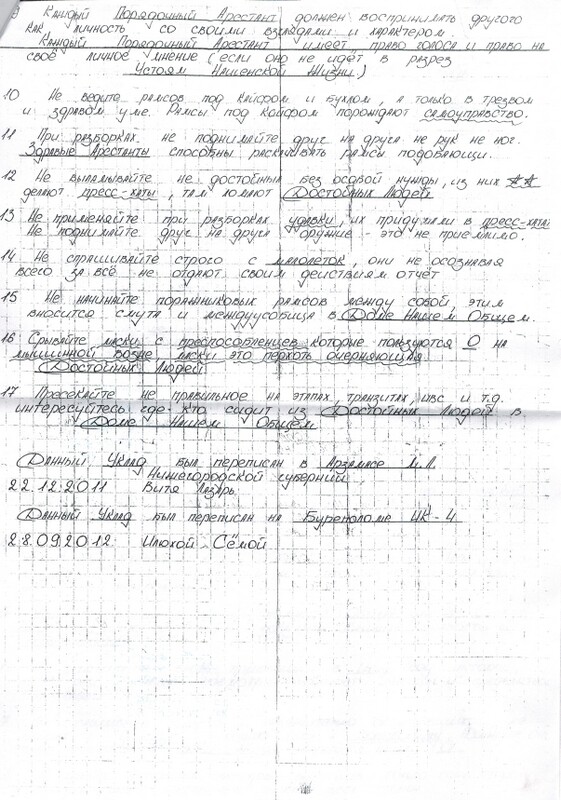 9 Каждый Порядочный Арестант должен воспринимать другого
как личность со своими взглядами и характером.
Каждый Порядочный Арестант имеет право голоса и право на
своё личное мнение (если оно не идёт в разрез
Устоям Нашенской Жизни.)
10 Не ведите рамсов под кайфом и бухлом, а только в трезвом
и здравом уме. Рамсы под кайфом порождают самоуправство.
11 При разборках не поднимайте друг на друга не рук не ног.
Здравые Арестанты способны раскачивать рамсы подобающи.
12 Не выламывайте не достойных без особой нужды, из них
делают пресс-хаты, там ломают Достойных Людей
13 Не применяйте при разборках удавки, их придумали в пресс-хатах
Не поднимайте друг на друга оружие - это не приемлимо.
14 Не спрашивайте строго с малолеток, они не осознавая
всего за всё не отдают своим действиям отчёт
15 Не начинайте порожняковых рамсов между собой, этим
вносится смута и междуусобица в Доме Нашем Общем.
16 Срывайте маски с преспособленцев которые пользуются О на
мышинной возне маски это перхоть очерняющая
Достойных Людей
17 Пресекайте не правильное на этапах, транзитах, ивс и т.д.
интересуйтесь где кто сидит из Достойных Людей в
Доме Нашем Общем
Данный Уклад был переписан в Арзамасе
Нижегородской губернии
22.12.2011 Витя Лазарь.
Данный Уклад был переписан на Буреполоме ИК-4
28.09.2012 Илюхой Сёмой